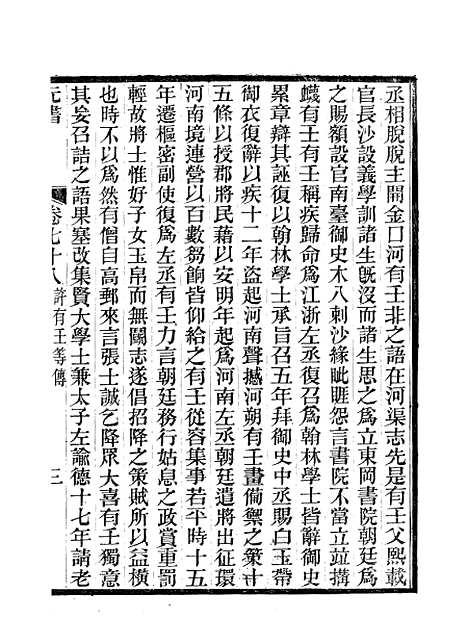 丞相脫脫主開金口河有壬非之語在河渠志先是有壬父熙載
官長沙設義學訓諸生旣沒而諸生思之爲立東岡書院朝廷爲
之賜額設官南臺御史木八剌沙緣眦睚怨言書院不當立竝搆
衊有壬有壬稱疾歸命爲江浙左丞復召爲翰林學士皆辭御史
累章辯其誣復以翰林學士承旨召五年拜御史中丞賜白玉帶
御衣復辭以疾十二年盜起河南聲撼河朔有壬畫備禦之策十
五條以授郡將民藉以安明年起爲河南左丞朝廷遣將出征環
河南境連營以百數芻餉皆仰給之有壬從容集事若平時十五
年遷樞密副使復爲左丞有壬力言朝廷務行姑息之政賞重罰
輕故將士惟好子女玉帛而無鬭志遂倡招降之策賊所以益橫
也時不以爲然有僧自高郵來言張士誠乞降眾大喜有壬獨意
其妄召詰之語果塞改集賢大學士兼太子左諭德十七年請老
元書 卷七十八 許有壬等傳 三